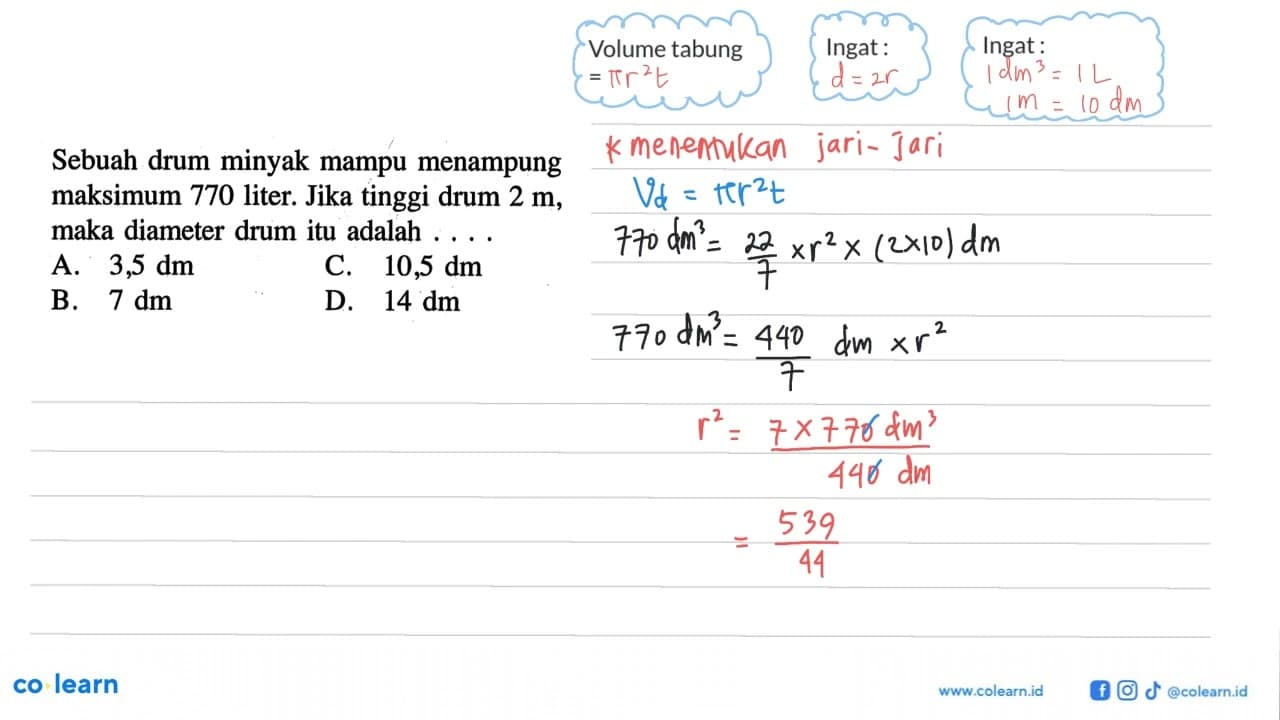 Volume tabung
= πr²t
Ingat :
d = 2r
Ingat :
1 dm³ = 1 L
1 m = 10 dm
Sebuah drum minyak mampu menampung
maksimum 770 liter. Jika tinggi drum 2 m,
maka diameter drum itu adalah . . . .
A. 3,5 dm C. 10,5 dm
B. 7 dm D. 14 dm
* menentukan jari-jari
Vd = πr²t
770 dm³ = 22/7 × r² × (2×10) dm
770 dm³ = 440/7 dm × r²
r² = 7 × 770 dm³ / 440 dm
= 539/44
co learn
www.colearn.id
@colearn.id